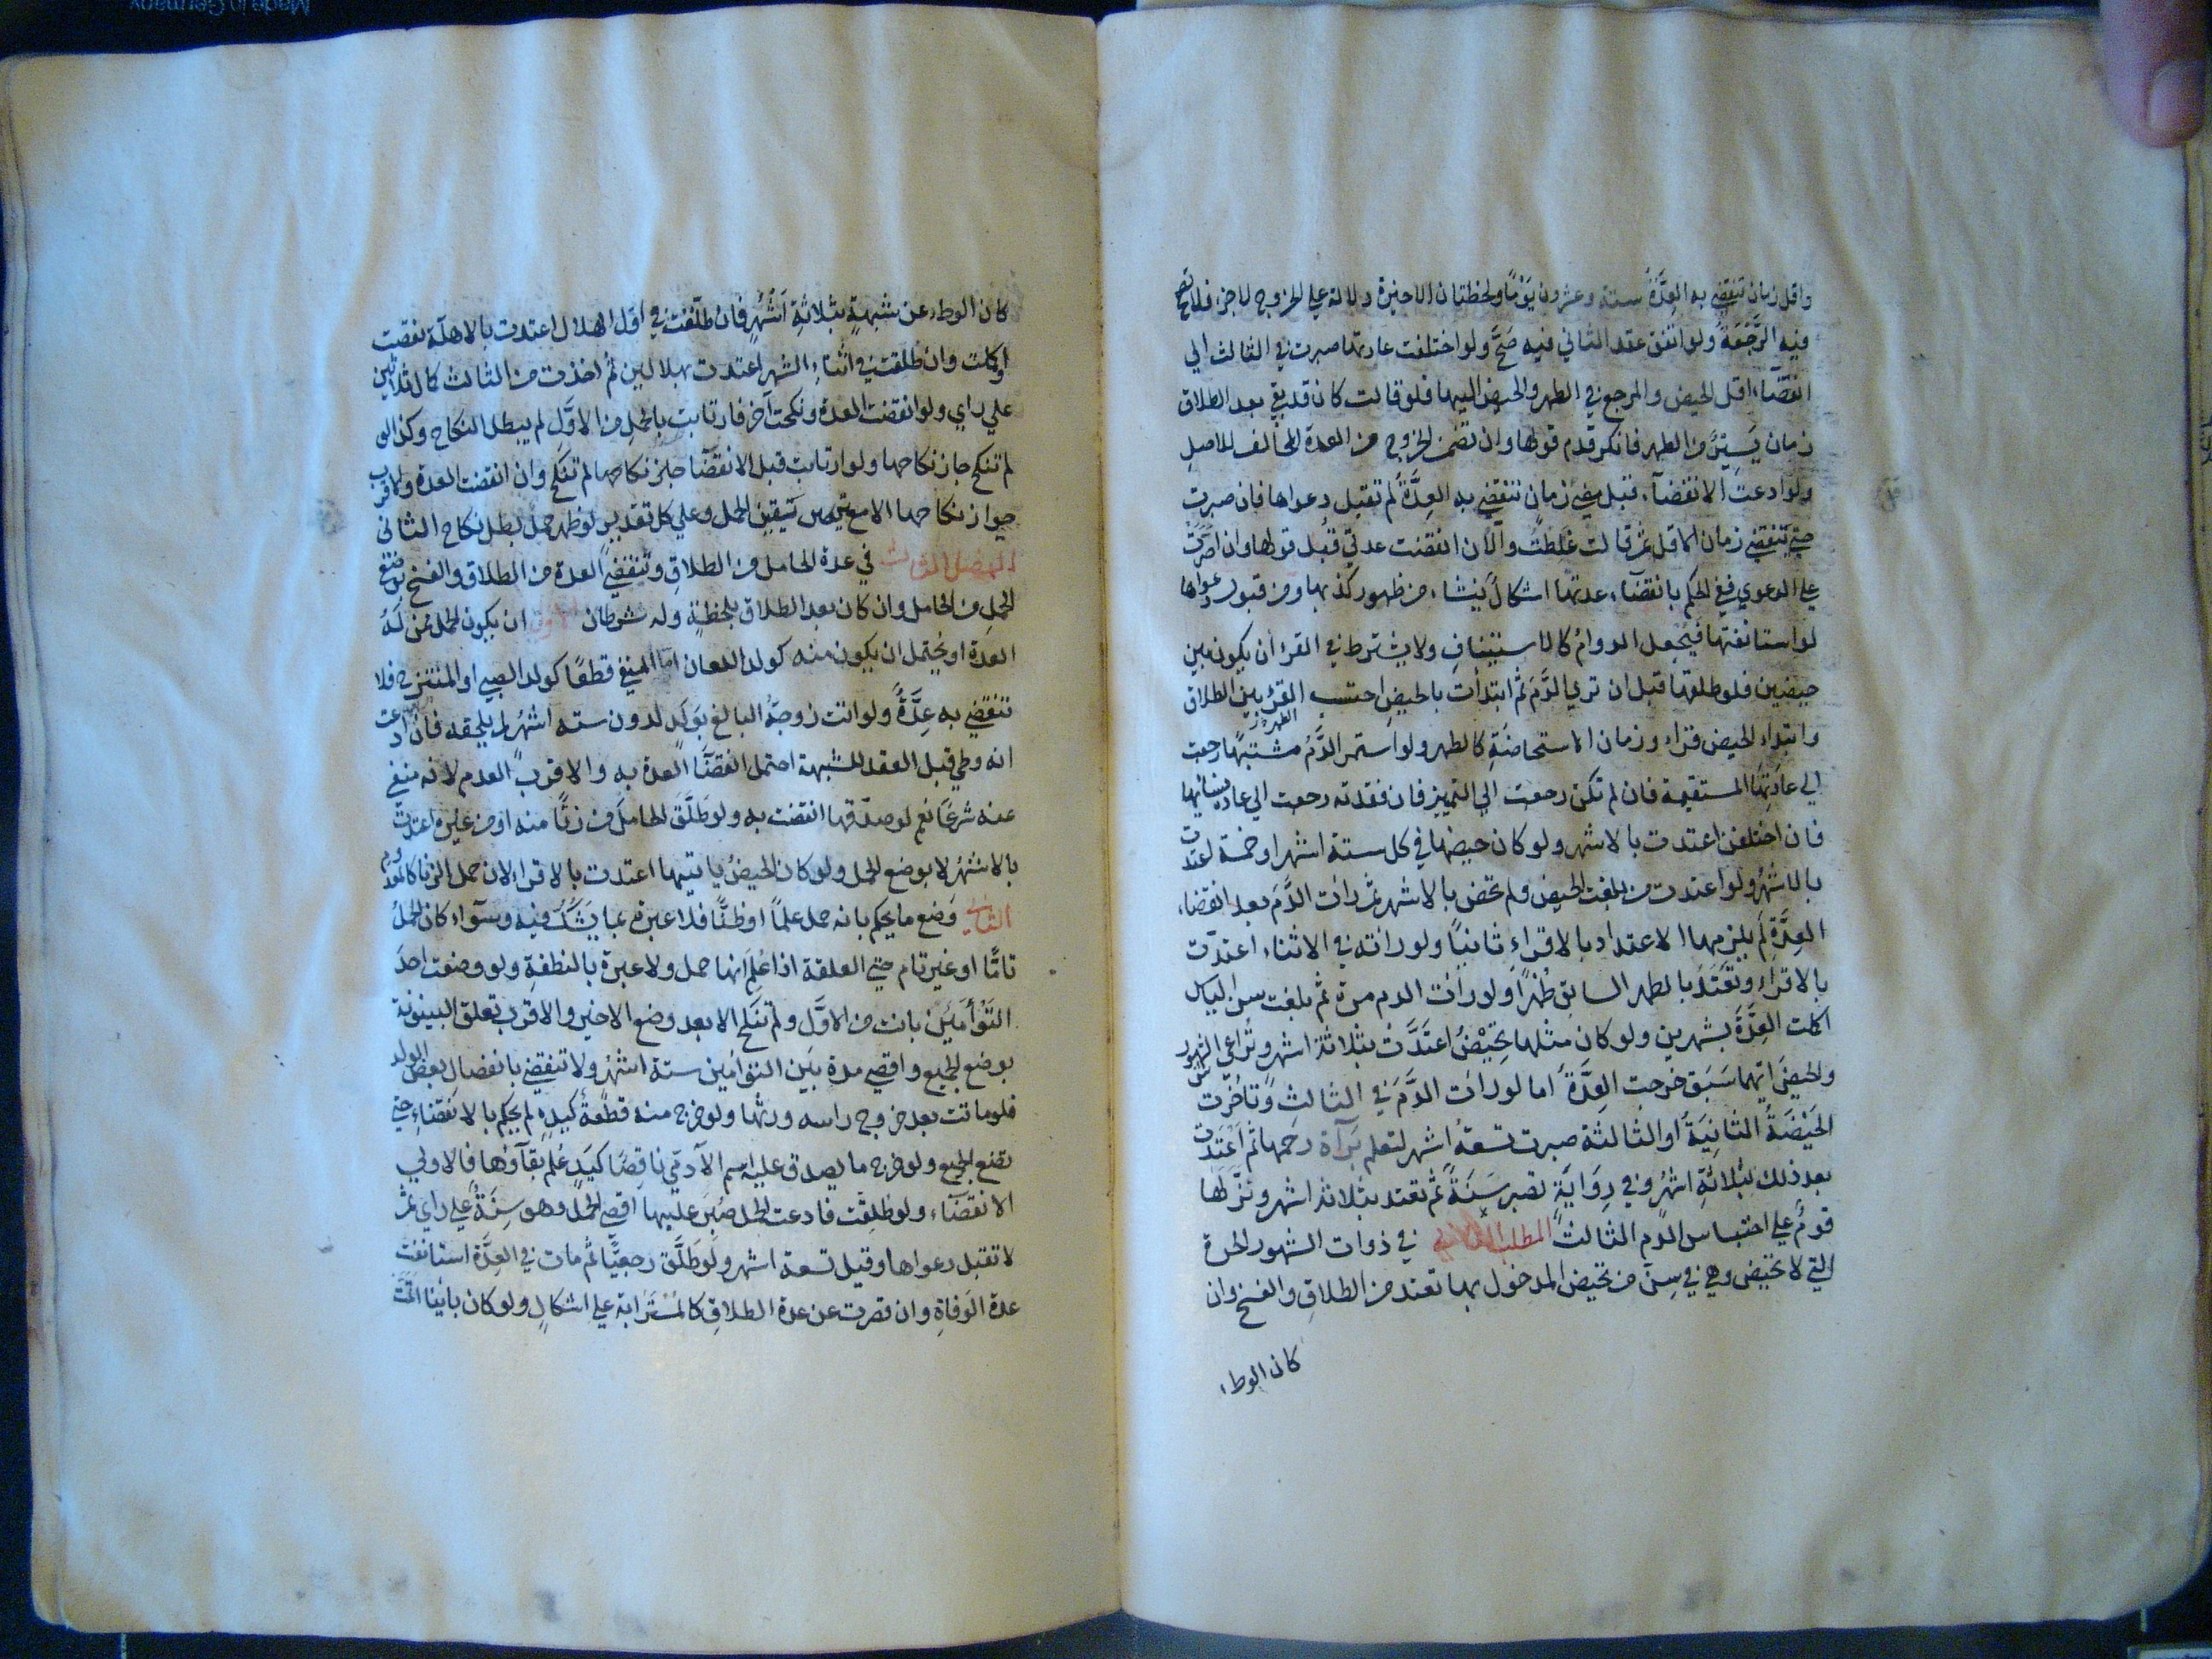 واقل زمان تنقضي به العِدَّةُ ستة وعشرون يَوْمًا ولحظتان الاخيرة دلالة علي الخروج لا جزء فلا تصح
فيه الرَّجْعَةُ ولو اتفق عقد الثاني فيه صَحَّ ولو اختلفت عادتها صبرت في الثالث الي
انقضآء اقل الحيض والمرجع في الطهر والحيض اليها فلو قالت كان قد بقي بعد الطلاق
زمان يَسِيْرٌ من الطهر فانكر قدم قولها وان تضمن الخروج من العدة المخالف للاصل
ولو ادعت الانقضآء قبل مضي زمان تنقضي به العِدَّةُ لم تقبل دعواها فان صبرت
حتي تنقضي زمان الاقل ثم قالت غَلِطتُ والآن انقضت عدتي قُبل قولها وان اصَرَّتْ
علي الدعوي ففي الحكم بانقضاء عدتها اشكالٌ يَنشاء من ظهور كذبها ومن قبول دعواها
لو استانفتها فيُجعل الدوامُ كالاستيناف ولا يشترط في القرء ان يكون بين
حيضين فلو طلقها قبل ان تري الدَّمَ ثم ابتدأت بالحيض احتسب القرء بين الطلاق
وابتداءِ الحيض قراء وزمان الاستحاضَةِ كالطهر ولو استمر الدَّمُ مشتبهًا رجعت
الي عادتِها المستقيمة فان لم تكن رجعت الي التمييز فان فقدته رجعت الي عادة نسائها
فان اختلفن اعتدت بالاشهر ولو كان حيضها في كل ستة اشهر او خمسة اعتدت
بالاشهُر ولو اعتدت من بلغت الحيض ولم تحض بالاشهر ثم رات الدَّمَ بعد انقضاء
العِدَّةِ لَم يلزمها الاعتداد بالاقراءِ ثانيًا ولو راته في الاثناء اعتدّت
بالاقراء وتَعْتَدُ بالطهر السابق طُهْرًا ولو رات الدم مرة ثم بلغت سن الياس
اكملت العِدَّةَ بشهرين ولو كان مثلها تَحِيْضُ اعتَدَّتْ بثلاثة اشهر وتُراعي الشهور
والحيضَ ايهما سَبَق خرجت العِدَّةُ اما لو رات الدَّمَ في الثالث وتاخرت
الحَيْضَةُ الثانِيَةُ او الثالثة صبرت تسعةُ اشهر لتعلم بَرَآة رحمها ثم اعْتَدت
بعد ذلك بثلاثةِ اشهُرٍ وفي رِوَايَةٍ تصبر سَنَةً ثم تعتد بثلاثة اشهر ونزّلها
قومٌ علي احتباس الدّم الثالث المطلب الثاني في ذوات الشهور الحرة
التي لا تحيض وهي في سِنِّ من تحيض المدخول بها تعتد من الطلاق والفسخ وان
كان الوطء
كان الوطء عن شبهةٍ بثلاثةِ اَشْهُرٍ فان طلّقت في اول الهلال اعتدت بالاهلّة نقصت
او كملت وان طلقت في اثناءِ الشهر اعتدت بهلالين ثم اخذت من الثالث كمال ثلاثين
علي راي ولو انقضت العدة ونكحت آخر فارتابت بالحمل من الاوَّل لم يبطل النكاح وكذا لو
لم تنكح جاز نكاحها ولو ارتابت قبل الانقضآء لم تنكح وان انقضت العدة والاقرب
جواز نكاحها الا مع تيقن الحمل وعلي كل تقدير لو ظهر حمل بطل نكاح الثاني
الفصل الثالث في عدة الحامل من الطلاق وتنقضي العدة من الطلاق والفسخ بوضع
الحمل من الحامل وان كان بعد الطلاق بلحظةٍ وله شرطان الاول ان يكون الحمل مِمَّن لَهُ
العدة او يُحتمل ان يكون منه كولد اللعان امّا المنفي قطعًا كولد الصبي او المنتزح فلا
تنقضي به عِدَّةٌ ولو اتت زوجةُ البالغ بوَلَدٍ لدون ستة اشهُر لم يلحقه فان ادعت
انه وطي قبل العقد للشبهة احتمل انقضَآ العدة به والاقربُ العدم لانه منفي
عنه شرعًا نعم لو صدّقها انقضت به ولو طَلَّقَ الحامل من زنًا منه او من غيره اعتدت
بالاشهُر لا بوضع الحمل ولو كان الحيضُ ياتيها اعتدت بالاقراء لان حمل الزنا كالمعدوم
الثاني وَضع ما يحكم بانه حمل علمًا او ظَنًّا فلا عبرة بما يَشُكُّ فيه وسَوآء كان الحملُ
تامًّا او غير تام حتي العلقة اذا عُلِمَ انها حمل ولا عبرة بالنطفةِ ولو وضعت احدَ
التَوْأَمَيْن بانت من الاوَّل ولم تنكح الا بعد وضع الاخير والاقرب تعلق البينونة
بوضع الجميع واقصي مدة بَين التوامين ستة اشهُر ولا تنقضي بانفصال بعض الولد
فلو ماتت بعد خروج راسه ورثها ولو خرج منه قطعةُ كَيَدٍ لم يحكم بالانقضاءِ حتي
تضع الجميع ولو خرج ما يصدق عليه اسم الآدمي ناقِصًا كَيَدٍ عُلم بقآؤها فالاولي
الانقضآء ولو طُلِّقت فادعت الحمل صُبِرَ عليها اقصي الحمل وهو سِنَةٌ علي راي ثم
لا تقبل دعواها وقيل تسعة اشهر ولو طَلَّق رجعيًّا ثم مات في العِدَّة استانفت
عدة الوَفاةِ وان قصرت عن عدة الطلاقِ كالمُسْتَرَابة علي اشكالٍ ولو كان باينا اتَمَّت